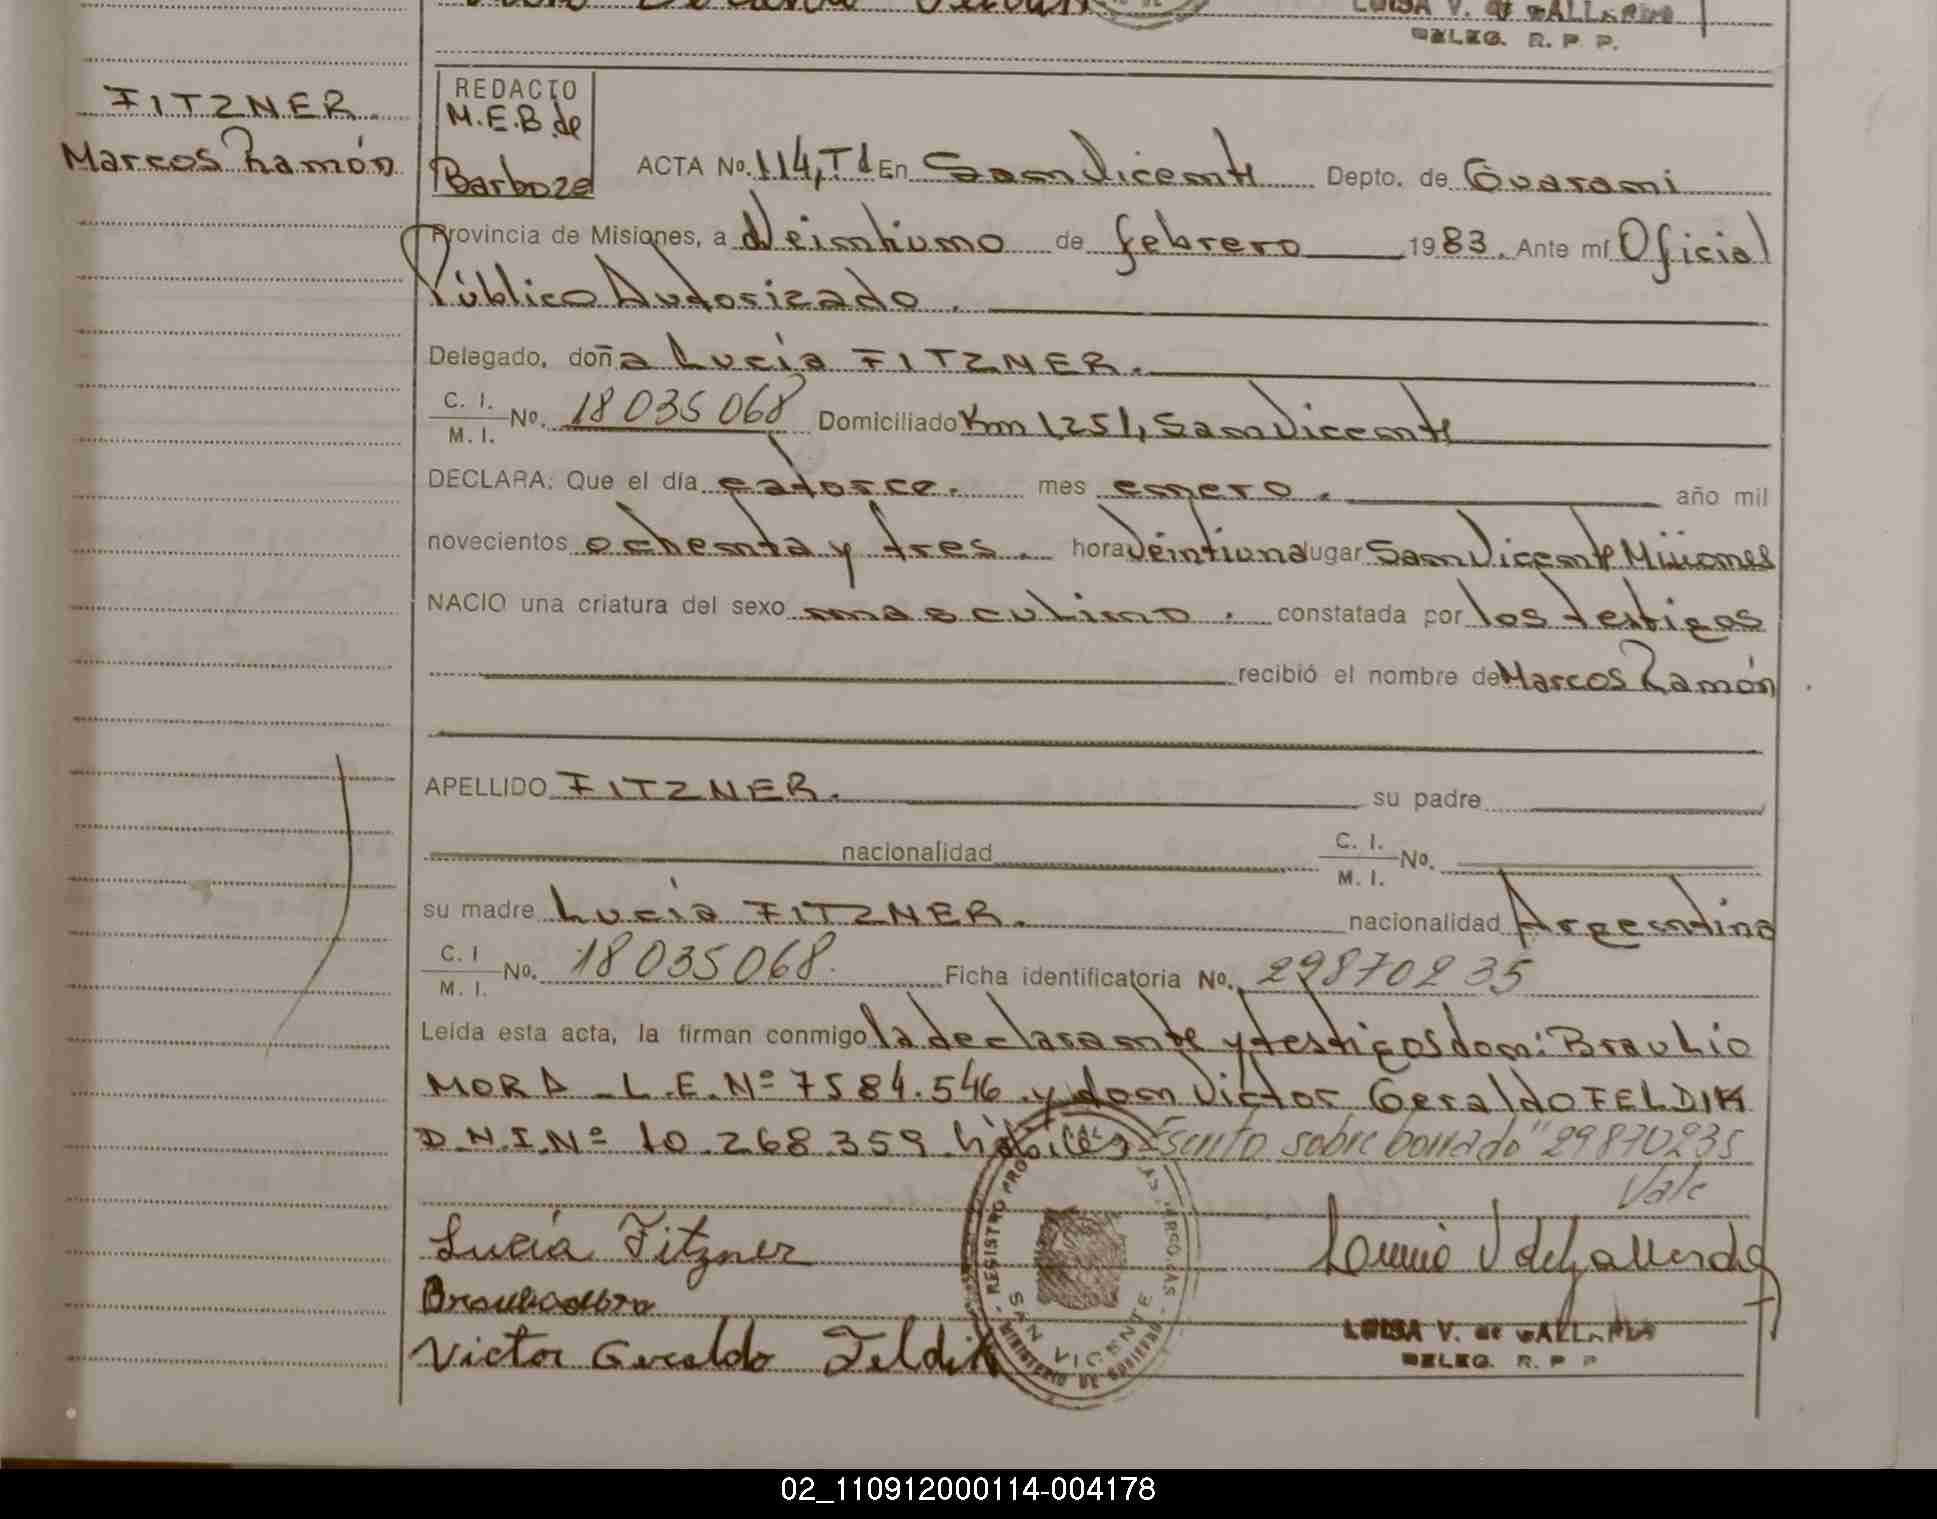 LUISA V. de GALLARDO
DELEG. R. P. P.
FITZNER.
Marcos Ramón
REDACTO
M.E.B. de
Barboza
ACTA No. 114, Tº I En San Vicente Depto. de Guaraní
Provincia de Misiones, a Veintiuno de febrero 1983. Ante mí Oficial
Público Autorizado.
Delegado, doña Lucía FITZNER.
C. I.
M. I. No. 18035068 Domiciliado Km 1251, San Vicente
DECLARA: Que el día catorce. mes enero. año mil
novecientos ochenta y tres. hora veintiuna lugar San Vicente Misiones
NACIO una criatura del sexo masculino. constatada por los testigos
recibió el nombre de Marcos Ramón
APELLIDO FITZNER. su padre
nacionalidad C. I.
M. I. No.
su madre Lucía FITZNER. nacionalidad Argentina
C. I
M. I. No. 18035068. Ficha identificatoria No. 29870235
Leída esta acta, la firman conmigo la declarante y testigos don: Braulio
MORA - L.E. Nº 7584.546 y don Victor Geraldo FELDIK
D.N.I. Nº 10.268.359 hábiles - Escrito sobre borrado "29870235
Vale
Lucía Fitzner
Victor Geraldo Feldik
REGISTRO PRO
SAN VICENTE
MINISTERIO DE GOBIERNO
LUISA V. de GALLARDO
DELEG. R. P P
02_110912000114-004178